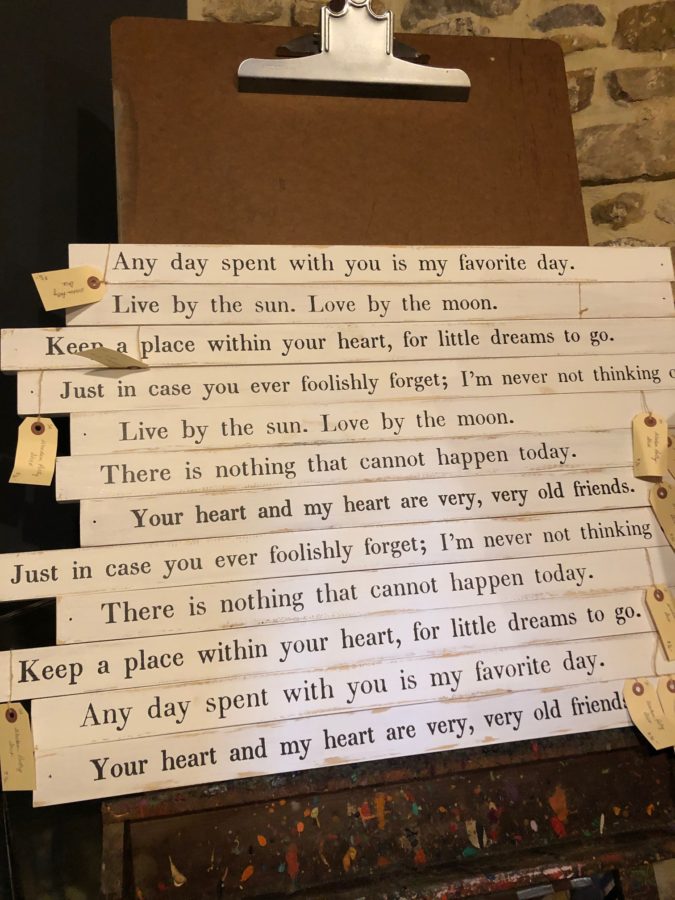 Any day spent with you is my favorite day.
Live by the sun. Love by the moon.
Keep a place within your heart, for little dreams to go.
Just in case you ever foolishly forget; I'm never not thinking
Live by the sun. Love by the moon.
There is nothing that cannot happen today.
Your heart and my heart are very, very old friends.
Just in case you ever foolishly forget; I'm never not thinking
There is nothing that cannot happen today.
Keep a place within your heart, for little dreams to go.
Any day spent with you is my favorite day.
Your heart and my heart are very, very old friends